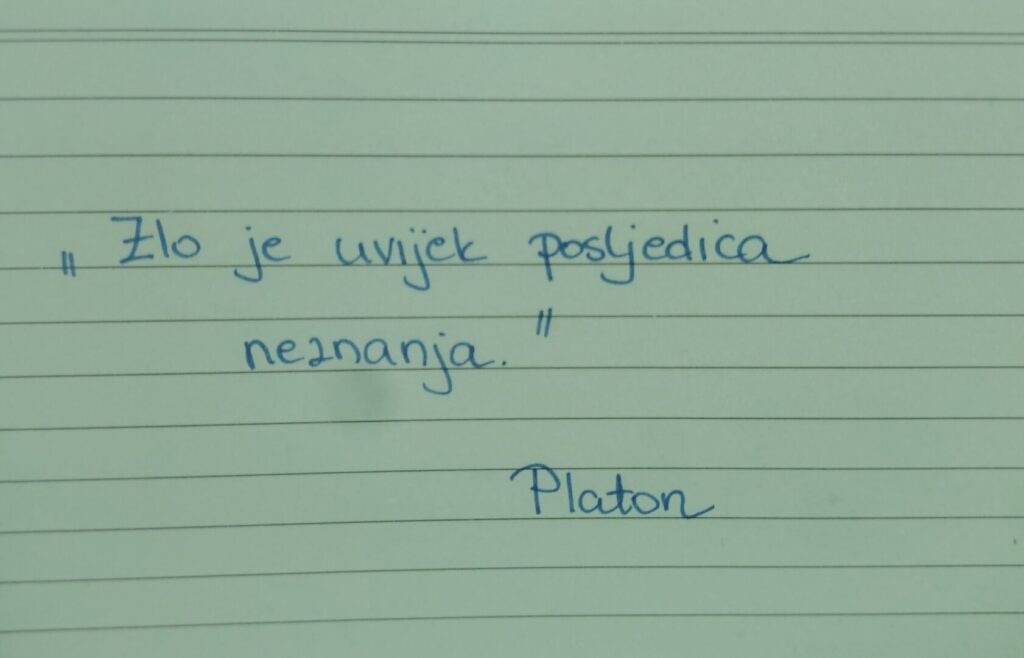 „Zlo je uvijek posljedica
neznanja."
Platon